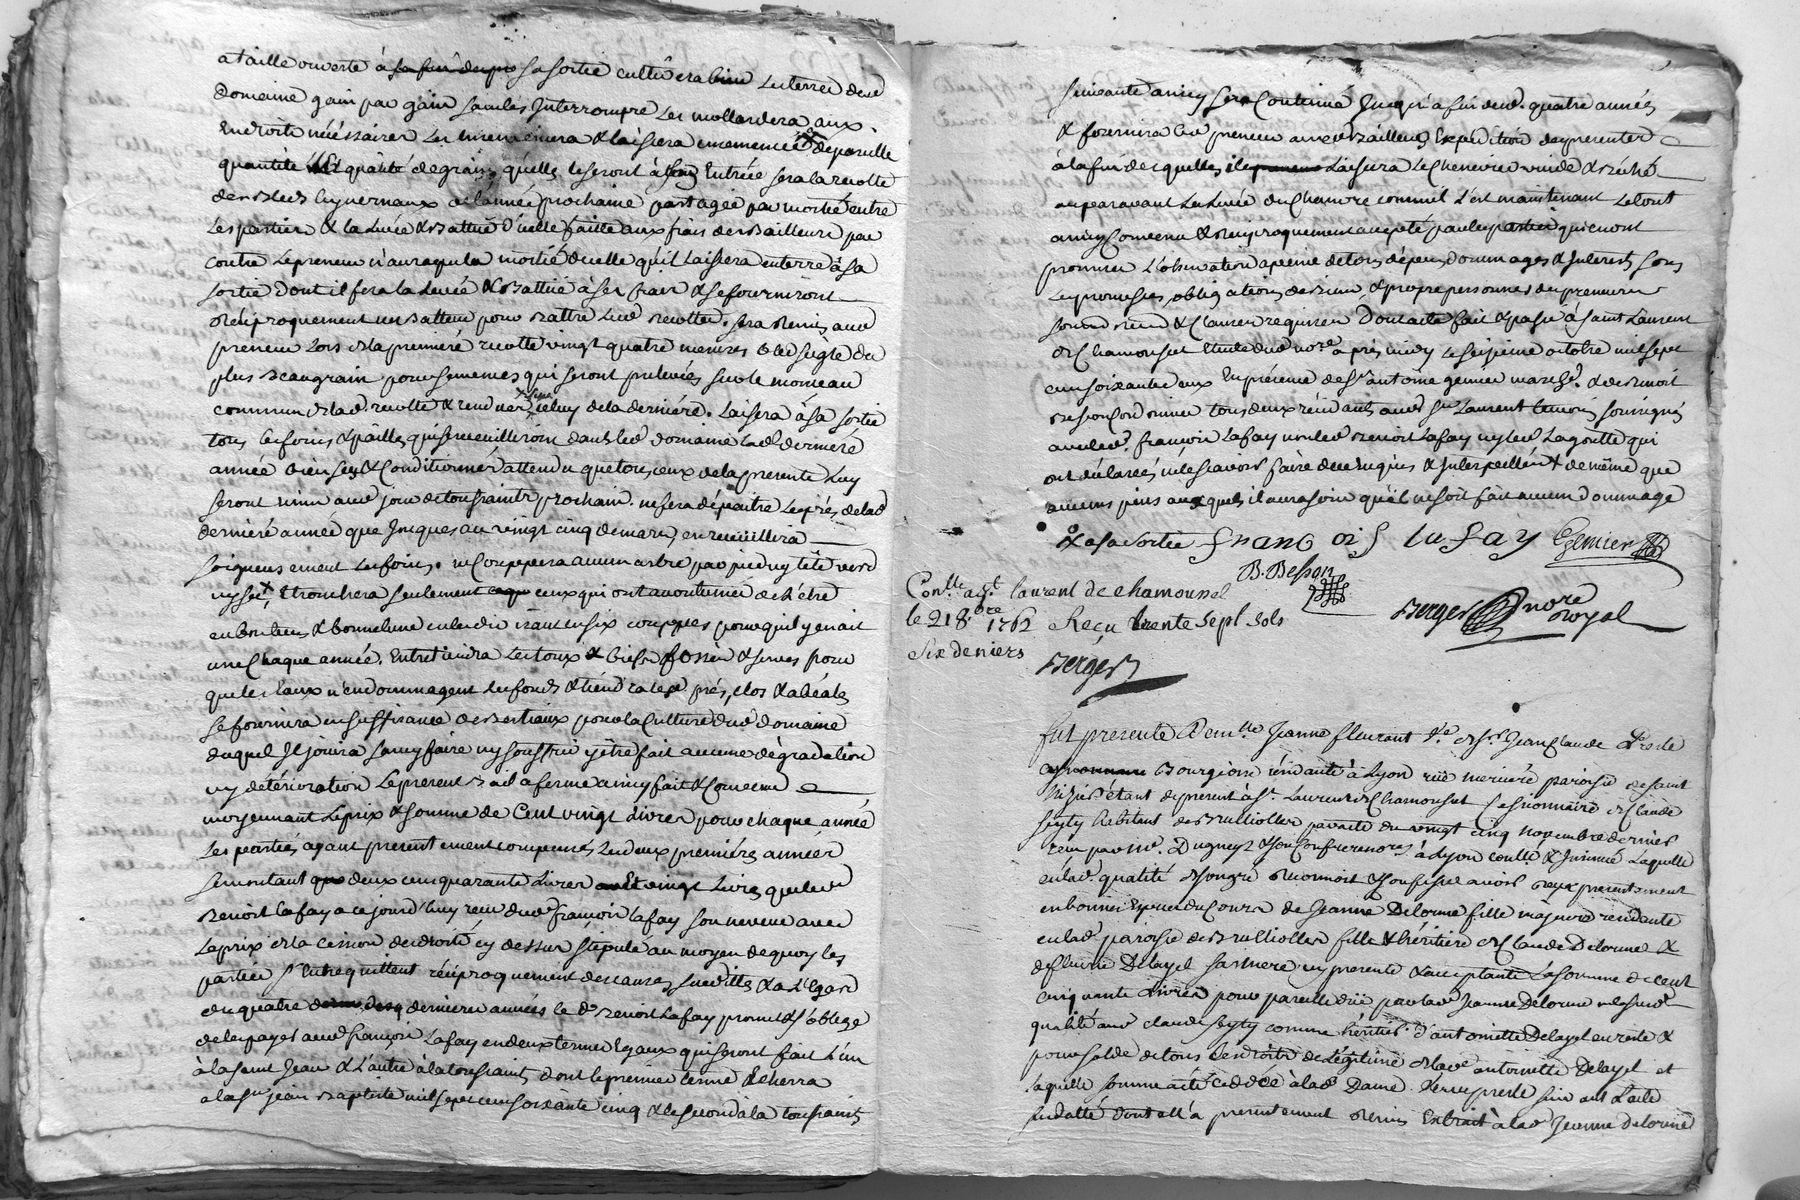 a taille ouverte à sa fin du pr sa sortie cultivera bien les terres dud
domaine gain par gain sans les Interrompre les mollardera aux
Endroits nécéssaires les ensemencera & laissera ensemencées de pareille
quantité Et qualité de grains qu'elles le seront à son Entrée sera la recolte
des bleds hyvernaux de l'année prochaine partagée par moitié entre
les parties & la levée & battue d'icelle faitte aux frais des Bailleurs par
contre le preneur n'aura que la moitié d'icelle qu'il laissera en terre à sa
sortie dont il fera la levée & Battüe à ses frais & se fourniront
réciproquement un batteur pour battre lesd recoltes. sera remis aud
preneur lors de la premiére recolte vingt quatre mesures bled seigle du
plus beau grain pour semences qui seront prelevées sur le monceau
commun de lad. recolte & rendues icelluy de la derniére. Laissera à sa sortie
tous les foins & pailles qui se recueilliront dans led domaine lad derniére
année bien secs & Conditionnés attendu que tous ceux de la presente luy
seront remis aud jour de toussaints prochain. ne fera dépaitre les prés de lad
derniére année que Jusques au vingt cinq de mars, en recueillira
soigneusement les foins. ne Couppera aucun arbre par pied ny tête verd
ny sec, & tronchera seulement ceux qui ont accoutumé de l'être
en bon tems & bonne lune en les divisant en six couppes pour qu'il y en ait
une Chaque année. Entretiendra les toux & biefs fossés & serves pour
que les Eaux n'endommagent les fonds & tiendra lesd prés, clos & abéalés
se fournira en suffisance de Bestiaux pour la Culture dud domaine
duquel Il jouira sans y faire ny souffrir y être fait aucune dégradation
ny détérioration Le present Bail a ferme ainsy fait & Convenu
moyennant le prix & somme de Cent vingt Livres pour chaque année
Les parties ayant presentement compensé les deux premiéres années
se montant deux cens quarante Livres Et vingt Livres que led
Benoit Lafay a ce jourd'huy reçu dud françois Lafay son neveu avec
Le prix de la Cession de droits cy dessus stipulé au moyen de quoy les
parties s'Entrequittent réciproquement des causes susdittes & a L'Egard
des quatre derniéres années le d. Benoit Lafay promet & s'oblige
de les payer aud françois Lafay en deux termes Egaux qui seront fait l'un
à la saint Jean & L'autre à la toussaints dont le premier terme Echerra
a la st jean Baptiste mil sept cens soixante cinq & le second à la toussaints
suivante ainsy sera Continué Jusqu'à fin desd. quatre années
& fournira led preneur auxd Bailleurs Expédition des presentes
à la fin desquelles il laissera le Chenevier vuide & bêché
auparavant la levée du Chanvre comme il l'est maintenant le tout
ainsy Convenu & réciproquement accepté par les parties qui en ont
promis L'observation a peine de tous dépens dommages & Interests sous
les promesses, obligations de biens, & propre personnes du preneur
soumissions & Clauses requises Dont acte fait & passé à Saint Laurent
de Chamousset Etude dud nore après midy le seizieme octobre mil sept
cens soixante deux En présence de Sr antoine genier march. & de Benoit
Besson Cordonnier tous deux résidants aud St Laurent temoins soussignés
avec led. françois Lafay non led Benoit Lafay ny led Lagoutte qui
ont déclarés ne le scavoir faire de ce enquis & Interpellés & de même que
aucuns pins auxquels il aura soin qu'il ne soit fait aucun dommage
& a sa Sortie franc ois lafay Genier
B. Besson
Berger nore royal
Con.lle a St. laurent de chamoussel
le 21 8.bre 1762 Reçu trente sept sols
six deniers
Berger
fut presente Dem.lle Jeanne fleurant Ve de Sr Jean Claude Preste
Bourgeois résidante à Lyon rüe merciére paroisse de saint
Nizier étant de present à St. Laurent de Chamousset Cessionnaire de Claude
Seyty habitant de Brullioles par acte du vingt cinq novembre dernier
reçu par Me. Dugneyt & son Confrere nores à Lyon conllé & Insinué Laquelle
en lad qualité de son gré reconnoit & Confesse avoir reçu presentement
en bonnes Especes du Cours de Jeanne Delorme fille majeure résidante
en lad paroisse de Brullioles fille & héritiére de Claude Delorme &
de fleurie Delayel sa mere icy presente & acceptante la somme de Cent
cinquante Livres pour pareille düe par lad Jeanne Delorme en lesd
qualité aud claude Seyty comme héritier d'antoinette Delayel en reste &
pour solde de tous les droits de Légitime de lad antoinette Delayel et
laquelle somme a été Cédée à lad Dame Veuve preste suivant L'acte
susdatté dont elle a presentement remis Extrait à lad Jeanne Delorme